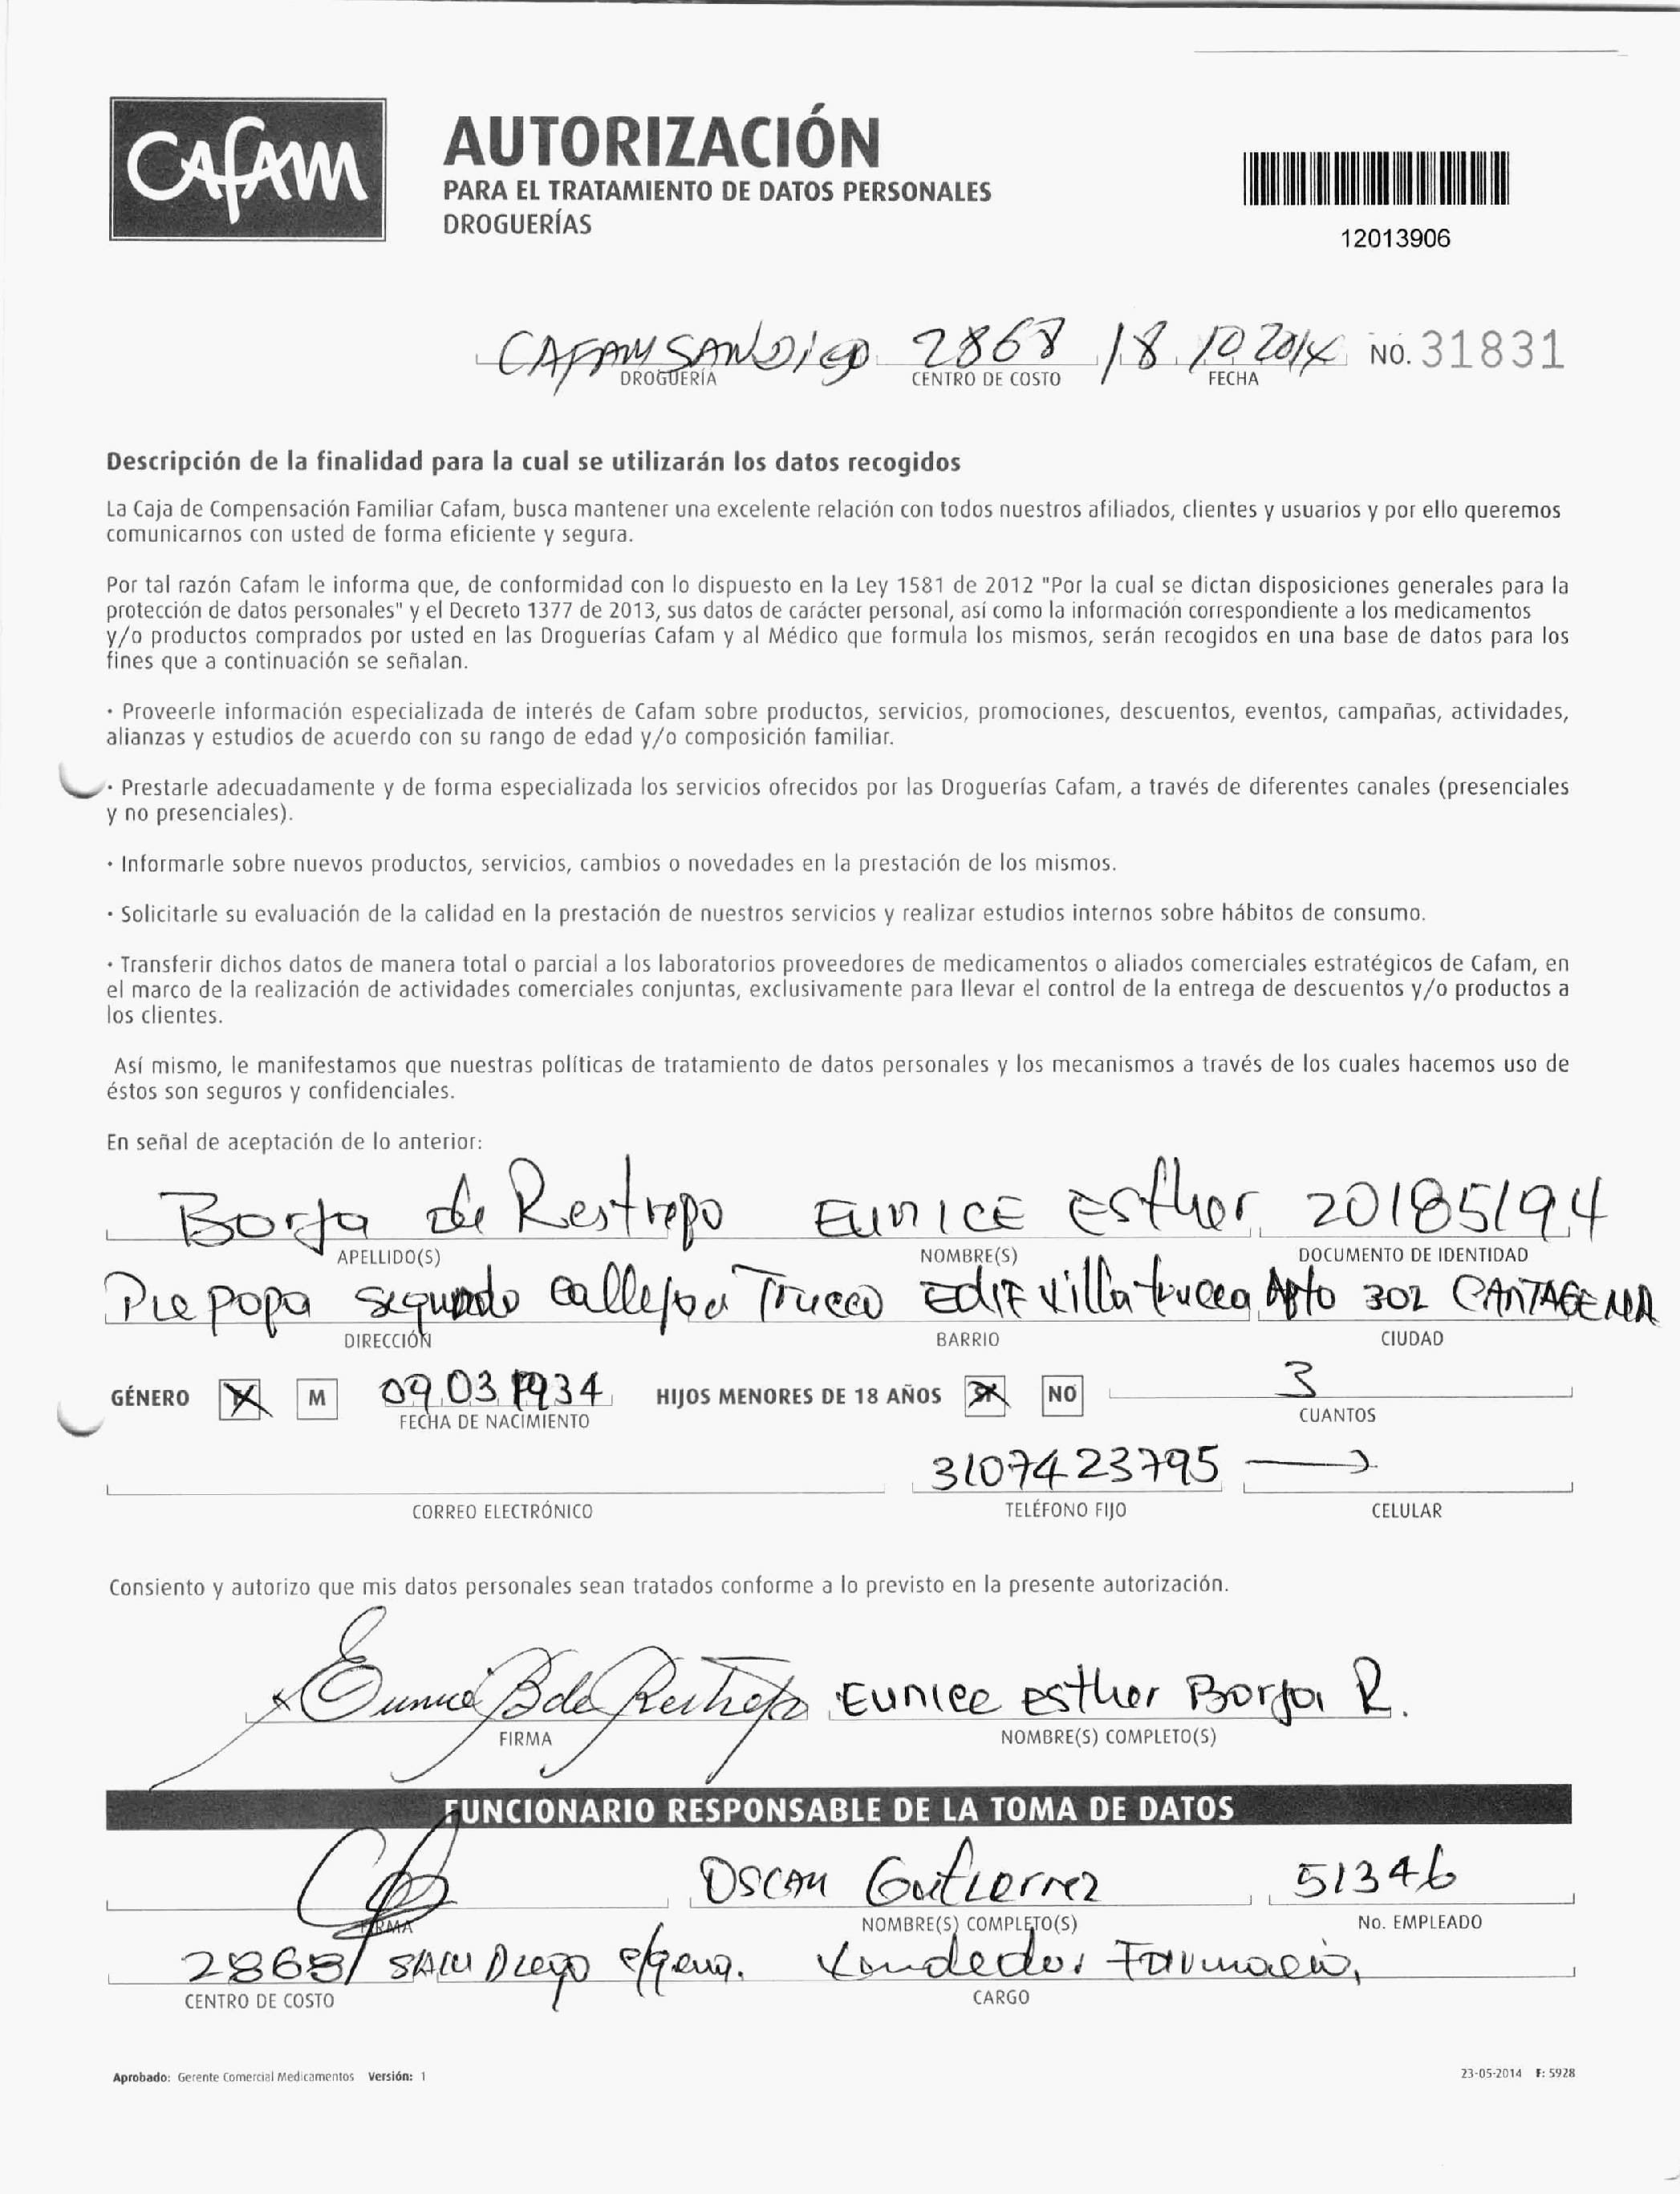 CAFAM
AUTORIZACIÓN
PARA EL TRATAMIENTO DE DATOS PERSONALES
DROGUERÍAS
12013906
CAFAM SANDIEGO 2868 18 10 2014 NO. 31831
DROGUERÍA CENTRO DE COSTO FECHA
Descripción de la finalidad para la cual se utilizarán los datos recogidos
La Caja de Compensación Familiar Cafam, busca mantener una excelente relación con todos nuestros afiliados, clientes y usuarios y por ello queremos
comunicarnos con usted de forma eficiente y segura.
Por tal razón Cafam le informa que, de conformidad con lo dispuesto en la Ley 1581 de 2012 "Por la cual se dictan disposiciones generales para la
protección de datos personales" y el Decreto 1377 de 2013, sus datos de carácter personal, así como la información correspondiente a los medicamentos
y/o productos comprados por usted en las Droguerías Cafam y al Médico que formula los mismos, serán recogidos en una base de datos para los
fines que a continuación se señalan.
· Proveerle información especializada de interés de Cafam sobre productos, servicios, promociones, descuentos, eventos, campañas, actividades,
alianzas y estudios de acuerdo con su rango de edad y/o composición familiar.
· Prestarle adecuadamente y de forma especializada los servicios ofrecidos por las Droguerías Cafam, a través de diferentes canales (presenciales
y no presenciales).
· Informarle sobre nuevos productos, servicios, cambios o novedades en la prestación de los mismos.
· Solicitarle su evaluación de la calidad en la prestación de nuestros servicios y realizar estudios internos sobre hábitos de consumo.
· Transferir dichos datos de manera total o parcial a los laboratorios proveedores de medicamentos o aliados comerciales estratégicos de Cafam, en
el marco de la realización de actividades comerciales conjuntas, exclusivamente para llevar el control de la entrega de descuentos y/o productos a
los clientes.
Así mismo, le manifestamos que nuestras políticas de tratamiento de datos personales y los mecanismos a través de los cuales hacemos uso de
éstos son seguros y confidenciales.
En señal de aceptación de lo anterior:
Borja de Restrepo Eunice Esther 20185194
APELLIDO(S) NOMBRE(S) DOCUMENTO DE IDENTIDAD
Pie popa segundo callejon Trucco Edif Villa trucco Apto 302 CARTAGENA
DIRECCIÓN BARRIO CIUDAD
GÉNERO X M 09 03 1934 HIJOS MENORES DE 18 AÑOS X NO 3
FECHA DE NACIMIENTO CUANTOS
3107423795
CORREO ELECTRÓNICO TELÉFONO FIJO CELULAR
Consiento y autorizo que mis datos personales sean tratados conforme a lo previsto en la presente autorización.
x Eunice B de Restrepo Eunice Esther Borja R.
FIRMA NOMBRE(S) COMPLETO(S)
FUNCIONARIO RESPONSABLE DE LA TOMA DE DATOS
OSCAR Gutierrez 51346
FIRMA NOMBRE(S) COMPLETO(S) No. EMPLEADO
2868/ SAN Diego Vendedor Farmacia
CENTRO DE COSTO CARGO
Aprobado: Gerente Comercial Medicamentos Versión: 1 23-05-2014 F: 5928